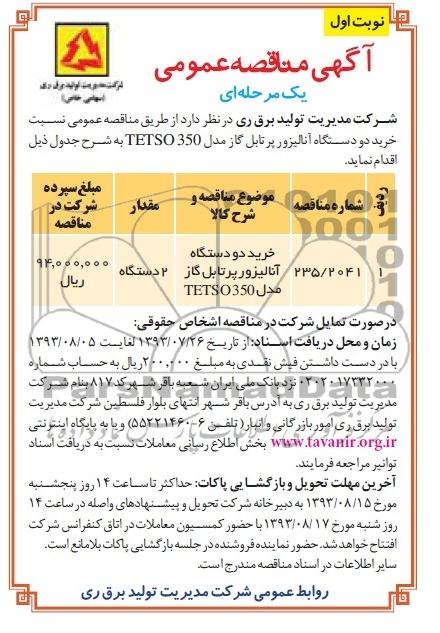 نوبت اول
شرکت مدیریت تولید برق ری
(سهامی خاص)
آگهی مناقصه عمومی
یک مرحله‌ای
شرکت مدیریت تولید برق ری در نظر دارد از طریق مناقصه عمومی نسبت
خرید دو دستگاه آنالیزور پرتابل گاز مدل TETSO 350 به شرح جدول ذیل
اقدام نماید.
ردیف
شماره مناقصه
موضوع مناقصه و شرح کالا
مقدار
مبلغ سپرده شرکت در مناقصه
۱
۲۳۵/۲۰۴۱
خرید دو دستگاه آنالیزور پرتابل گاز مدل TETSO350
۲ دستگاه
۹۴,۰۰۰,۰۰۰ ریال
درصورت تمایل شرکت در مناقصه اشخاص حقوقی:
زمان و محل دریافت اسناد: از تاریخ ۱۳۹۳/۰۷/۲۶ لغایت ۱۳۹۳/۰۸/۰۵
با در دست داشتن فیش نقدی به مبلغ ۲۰۰,۰۰۰ ریال به حساب شماره
۰۲۰۲۰۱۷۳۳۲۰۰۰ نزد بانک ملی ایران شعبه باقر شهر کد ۸۱۷ بنام شرکت
مدیریت تولید برق ری به آدرس باقر شهر انتهای بلوار فلسطین شرکت مدیریت
تولید برق ری امور بازرگانی و انبار (تلفن ۶-۵۵۲۲۱۴۶۰) و یا به پایگاه اینترنتی
www.tavanir.org.ir بخش اطلاع رسانی معاملات نسبت به دریافت اسناد
توانیر مراجعه فرمایند.
آخرین مهلت تحویل و بازگشایی پاکات: حداکثر تا ساعت ۱۴ روز پنجشنبه
مورخ ۱۳۹۳/۰۸/۱۵ به دبیرخانه شرکت تحویل و پیشنهادهای واصله در ساعت ۱۴
روز شنبه مورخ ۱۳۹۳/۰۸/۱۷ با حضور کمسیون معاملات در اتاق کنفرانس شرکت
افتتاح خواهد شد. حضور نماینده فروشنده در جلسه بازگشایی پاکات بلامانع است.
سایر اطلاعات در اسناد مناقصه مندرج است.
روابط عمومی شرکت مدیریت تولید برق ری